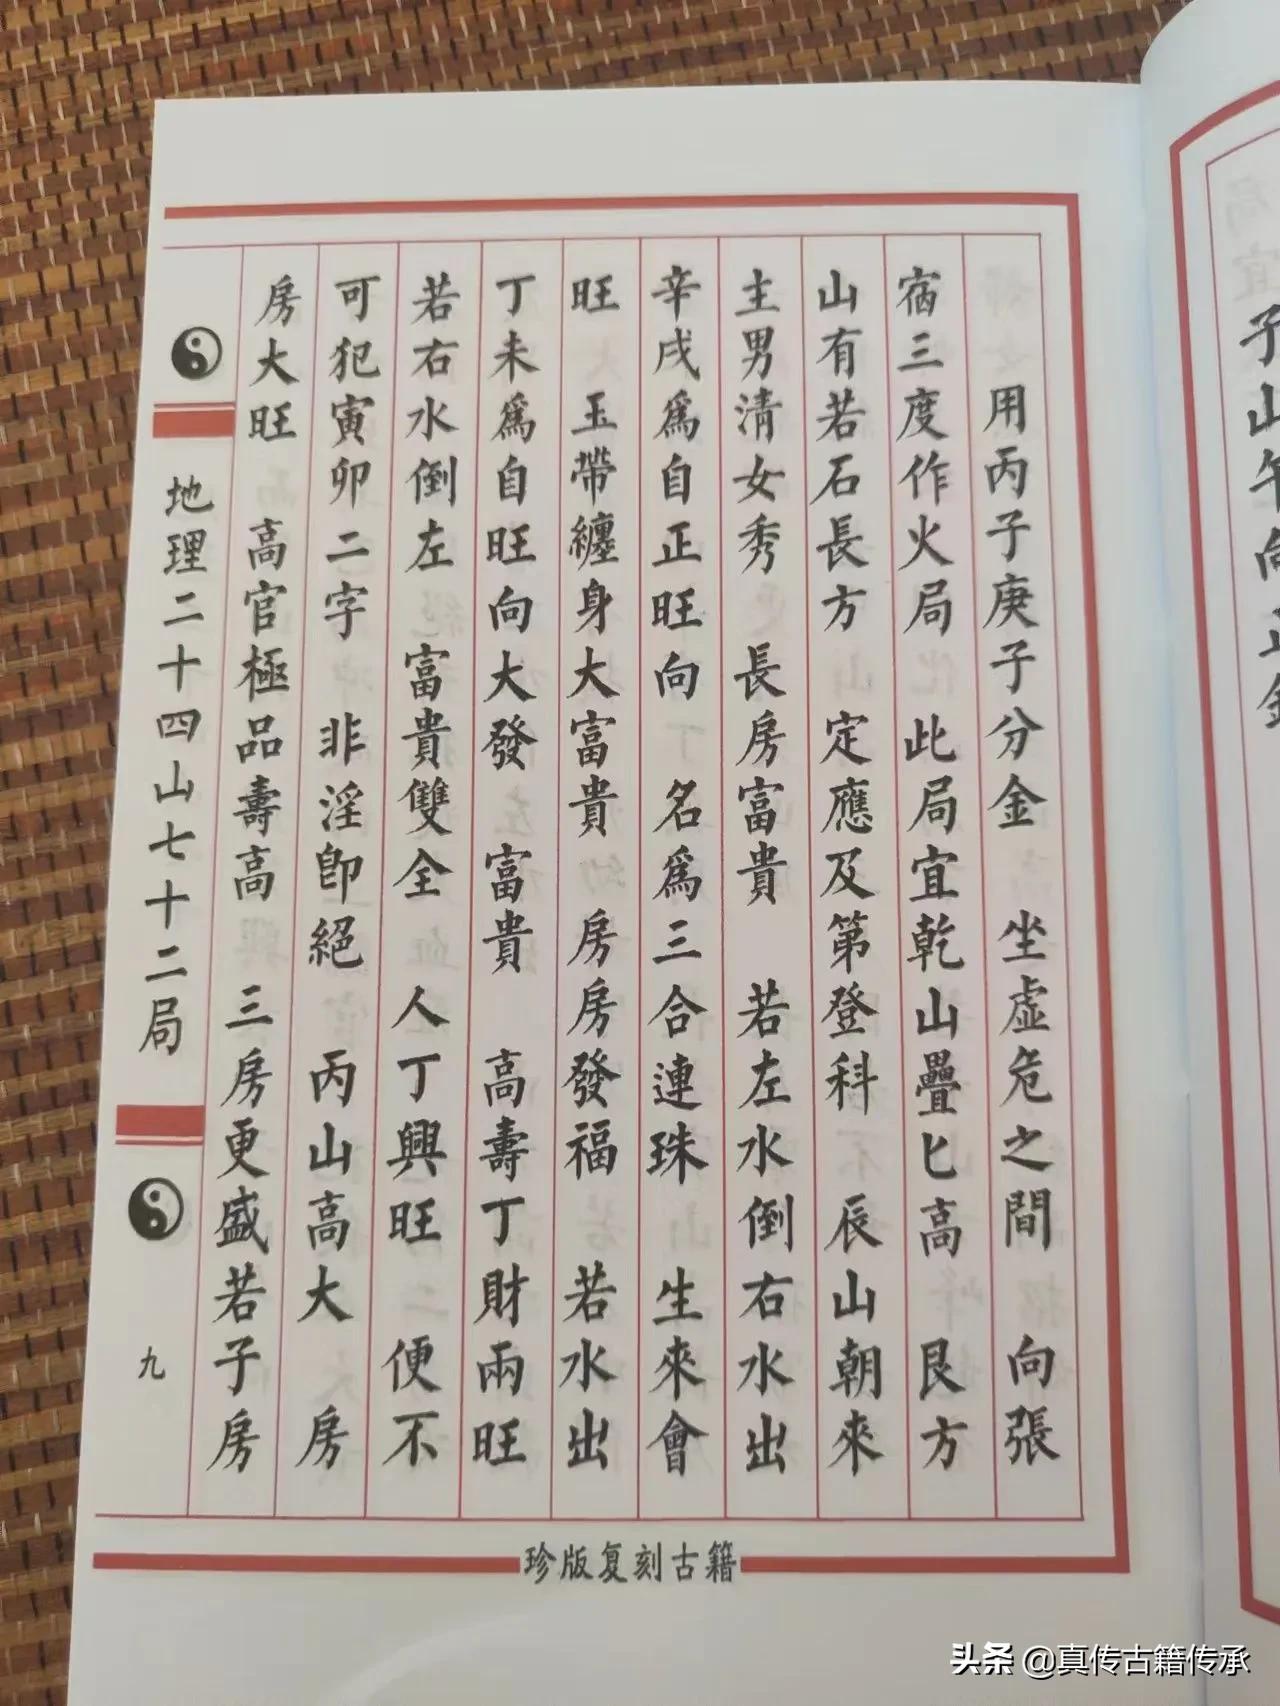 用丙子庚子分金　坐虛危之間　向張
宿三度作火局　此局宜乾山疊匕高　艮方
山有若石長方　定應及第登科　辰山朝來
主男清女秀　長房富貴　若左水倒右水出
辛戌爲自正旺向　名爲三合連珠　生來會
旺　玉帶纏身大富貴　房房發福　若水出
丁未爲自旺向大發　富貴　高壽丁財兩旺
若右水倒左　富貴雙全　人丁興旺　便不
可犯寅卯二字　非淫即絕　丙山高大　房
房大旺　高官極品壽高　三房更盛若子房
地理二十四山七十二局
九
珍版复刻古籍
子山午向正金
头条 @真传古籍传承